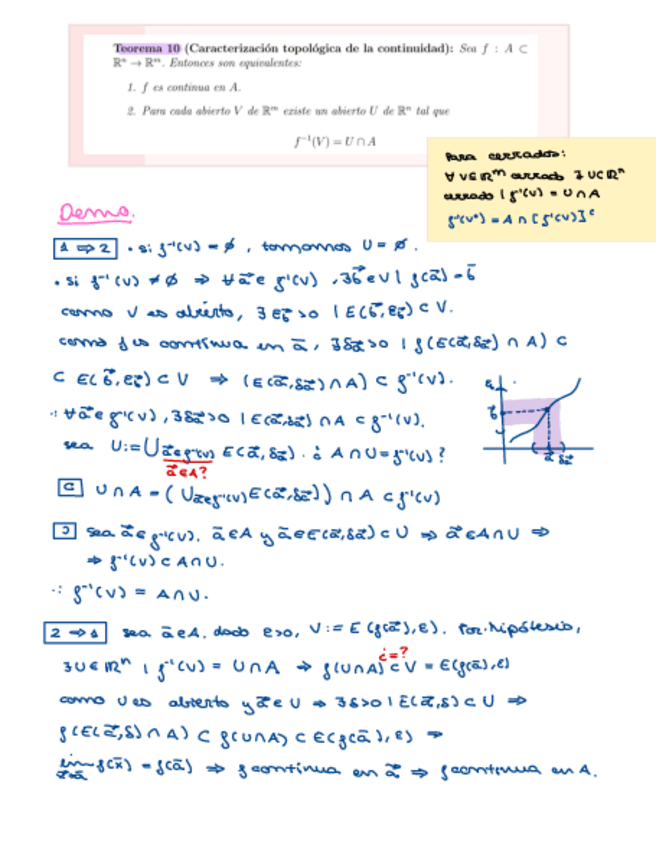 Teorema 10 (Caracterización topológica de la continuidad): Sea f : A ⊂
ℝⁿ → ℝᵐ. Entonces son equivalentes:
1. f es continua en A.
2. Para cada abierto V de ℝᵐ existe un abierto U de ℝⁿ tal que
f⁻¹(V) = U ∩ A
Para cerrados:
∀ V∈ℝᵐ cerrado ∃ U⊂ℝⁿ
cerrado | f⁻¹(V) = U∩A
f⁻¹(Vᶜ) = A∩[f⁻¹(V)]ᶜ
Demo.
1 ⇒ 2 • si f⁻¹(V) = ∅, tomamos U = ∅.
• si f⁻¹(V) ≠ ∅ ⇒ ∀a⃗ ∈ f⁻¹(V), ∃b⃗ ∈ V | f(a⃗) = b⃗
como V es abierto, ∃ εb⃗ >0 | E(b⃗, εb⃗) ⊂ V.
como f es continua en a⃗, ∃δa⃗ >0 | f(E(a⃗,δa⃗) ∩ A) ⊂
⊂ E(b⃗, εb⃗) ⊂ V ⇒ (E(a⃗,δa⃗)∩A) ⊂ f⁻¹(V).
∴ ∀a⃗∈f⁻¹(V), ∃δa⃗>0 | E(a⃗,δa⃗) ∩ A ⊂ f⁻¹(V).
sea U:=⋃a⃗∈f⁻¹(V) E(a⃗,δa⃗). ¿ A∩U=f⁻¹(V)?
a⃗∈A?
b⃗
a⃗ δa⃗
⊂ U∩A = (⋃a⃗∈f⁻¹(V) E(a⃗,δa⃗)) ∩ A ⊂ f⁻¹(V)
⊃ sea a⃗∈f⁻¹(V). a⃗∈A y a⃗∈E(a⃗,δa⃗)⊂U ⇒ a⃗∈A∩U ⇒
⇒ f⁻¹(V)⊂A∩U.
∴ f⁻¹(V) = A∩U.
2 ⇒ 1 sea a⃗∈A. dado ε>0, V:= E(f(a⃗),ε). Por hipótesis,
∃U∈ℝⁿ | f⁻¹(V) = U∩A ⇒ f(U∩A) ⊂ V = E(f(a⃗),ε)
¿=?
como U es abierto y a⃗∈U ⇒ ∃δ>0 | E(a⃗,δ)⊂U ⇒
f(E(a⃗,δ)∩A) ⊂ f(U∩A) ⊂ E(f(a⃗),ε) ⇒
lim x⃗→a⃗ f(x⃗) = f(a⃗) ⇒ f continua en a⃗ ⇒ f continua en A.